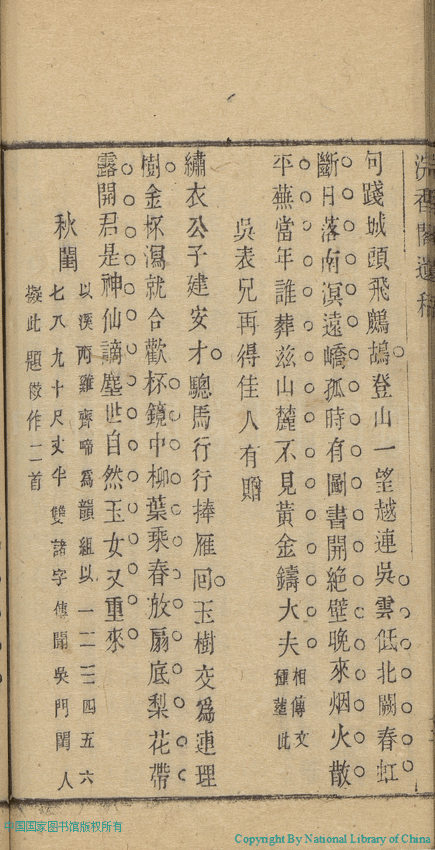 浣香閣遺稿
句踐城頭飛鷓鴣登山一望越連吳雲低北闕春虹
斷日落南溟遠嶠孤時有圖書開絕壁晚來烟火散
平蕪當年誰葬兹山麓不見黃金鑄大夫相傳文種墓此
吳表兄再得佳人有贈
繡衣公子建安才驄馬行行捧雁回玉樹交為連理
樹金杯瀉就合歡杯鏡中柳葉乘春放扇底梨花帶
露開君是神仙謫塵世自然玉女又重來
秋閨以溪西雞齊啼爲韻組以一二三四五六
七八九十尺丈半雙諸字傳聞吳門閨人
擬此題倣作二首
中国国家图书馆版权所有
Copyright By National Library of China